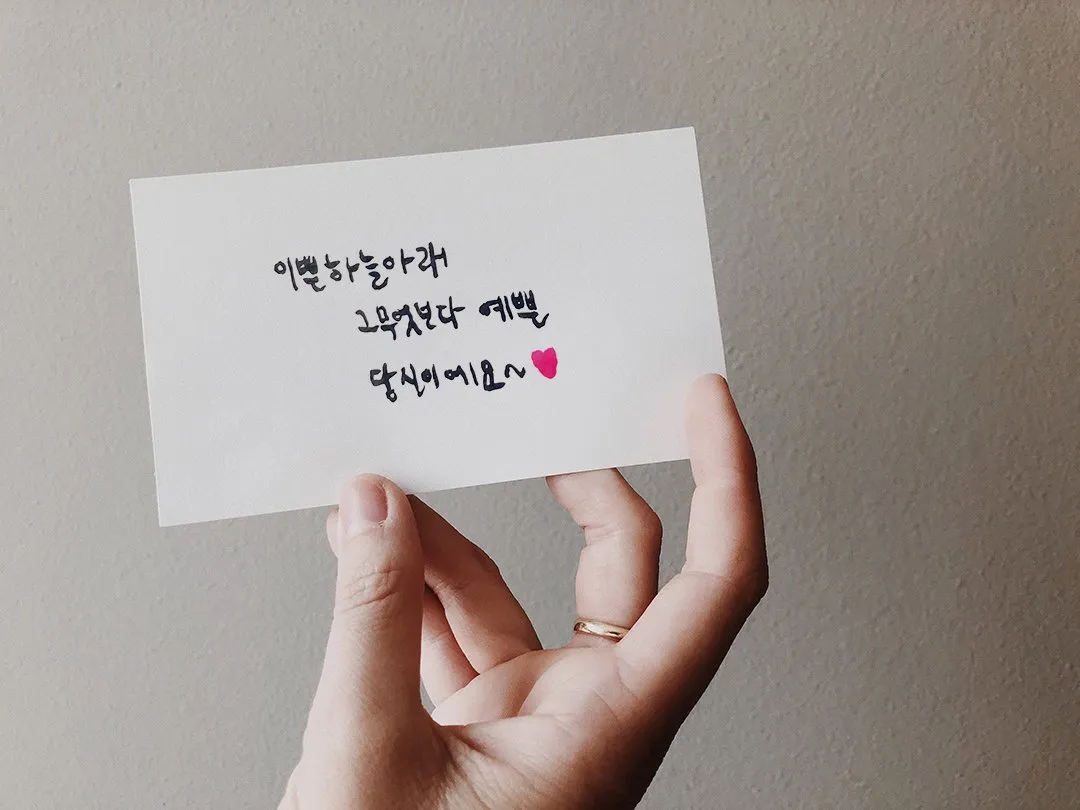 이쁜하늘아래
그무엇보다 예쁜
당신이에요~♥